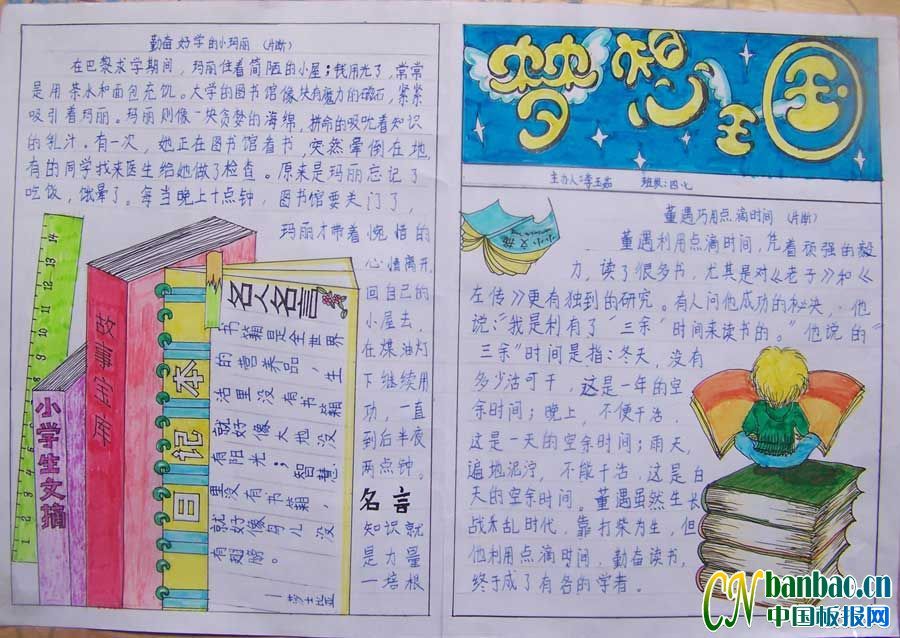 勤奋好学的小玛丽 (片断)
在巴黎求学期间，玛丽住着简陋的小屋；钱用光了，常常
是用茶水和面包充饥。大学的图书馆像块有魔力的磁石，紧紧
吸引着玛丽。玛丽则像一块贪婪的海绵，拼命的吸吮着知识
的乳汁。有一次，她正在图书馆看书，突然晕倒在地，
有的同学找来医生给她做了检查。原来是玛丽忘记了
吃饭，饿晕了。每当晚上十点钟，图书馆要关门了，
玛丽才带着惋惜的
心情离开，
回自己的
小屋去，
在煤油灯
下继续用
功，一直
到后半夜
两点钟。
名言
知识就
是力量
一培根
14
小学生文摘
故事
日记本
名人名言
书籍是全世界
的营养品，生
活里没有书籍
就好像大地没
有阳光；智慧
里没有书籍，
就好像鸟儿没
有翅膀。
—莎士比亚
梦想王国
主办人:李玉茹 班级:四·七
小小文摘
董遇巧用点滴时间 (片断)
董遇利用点滴时间，凭着顽强的毅
力，读了很多书，尤其是对《老子》和《
左传》更有独到的研究。有人问他成功的秘决，他
说："我是利有了"三余"时间来读书的。"他说的"
三余"时间是指：冬天，没有
多少活可干，这是一年的空
余时间；晚上，不便干活，
这是一天的空余时间；雨天，
遍地泥泞，不能干活，这是白
天的空余时间。董遇虽然生长
战末乱时代，靠打柴为生，但
他利用点滴时间，勤奋读书，
终于成了有名的学者。
CN banbao.cn
中国板报网